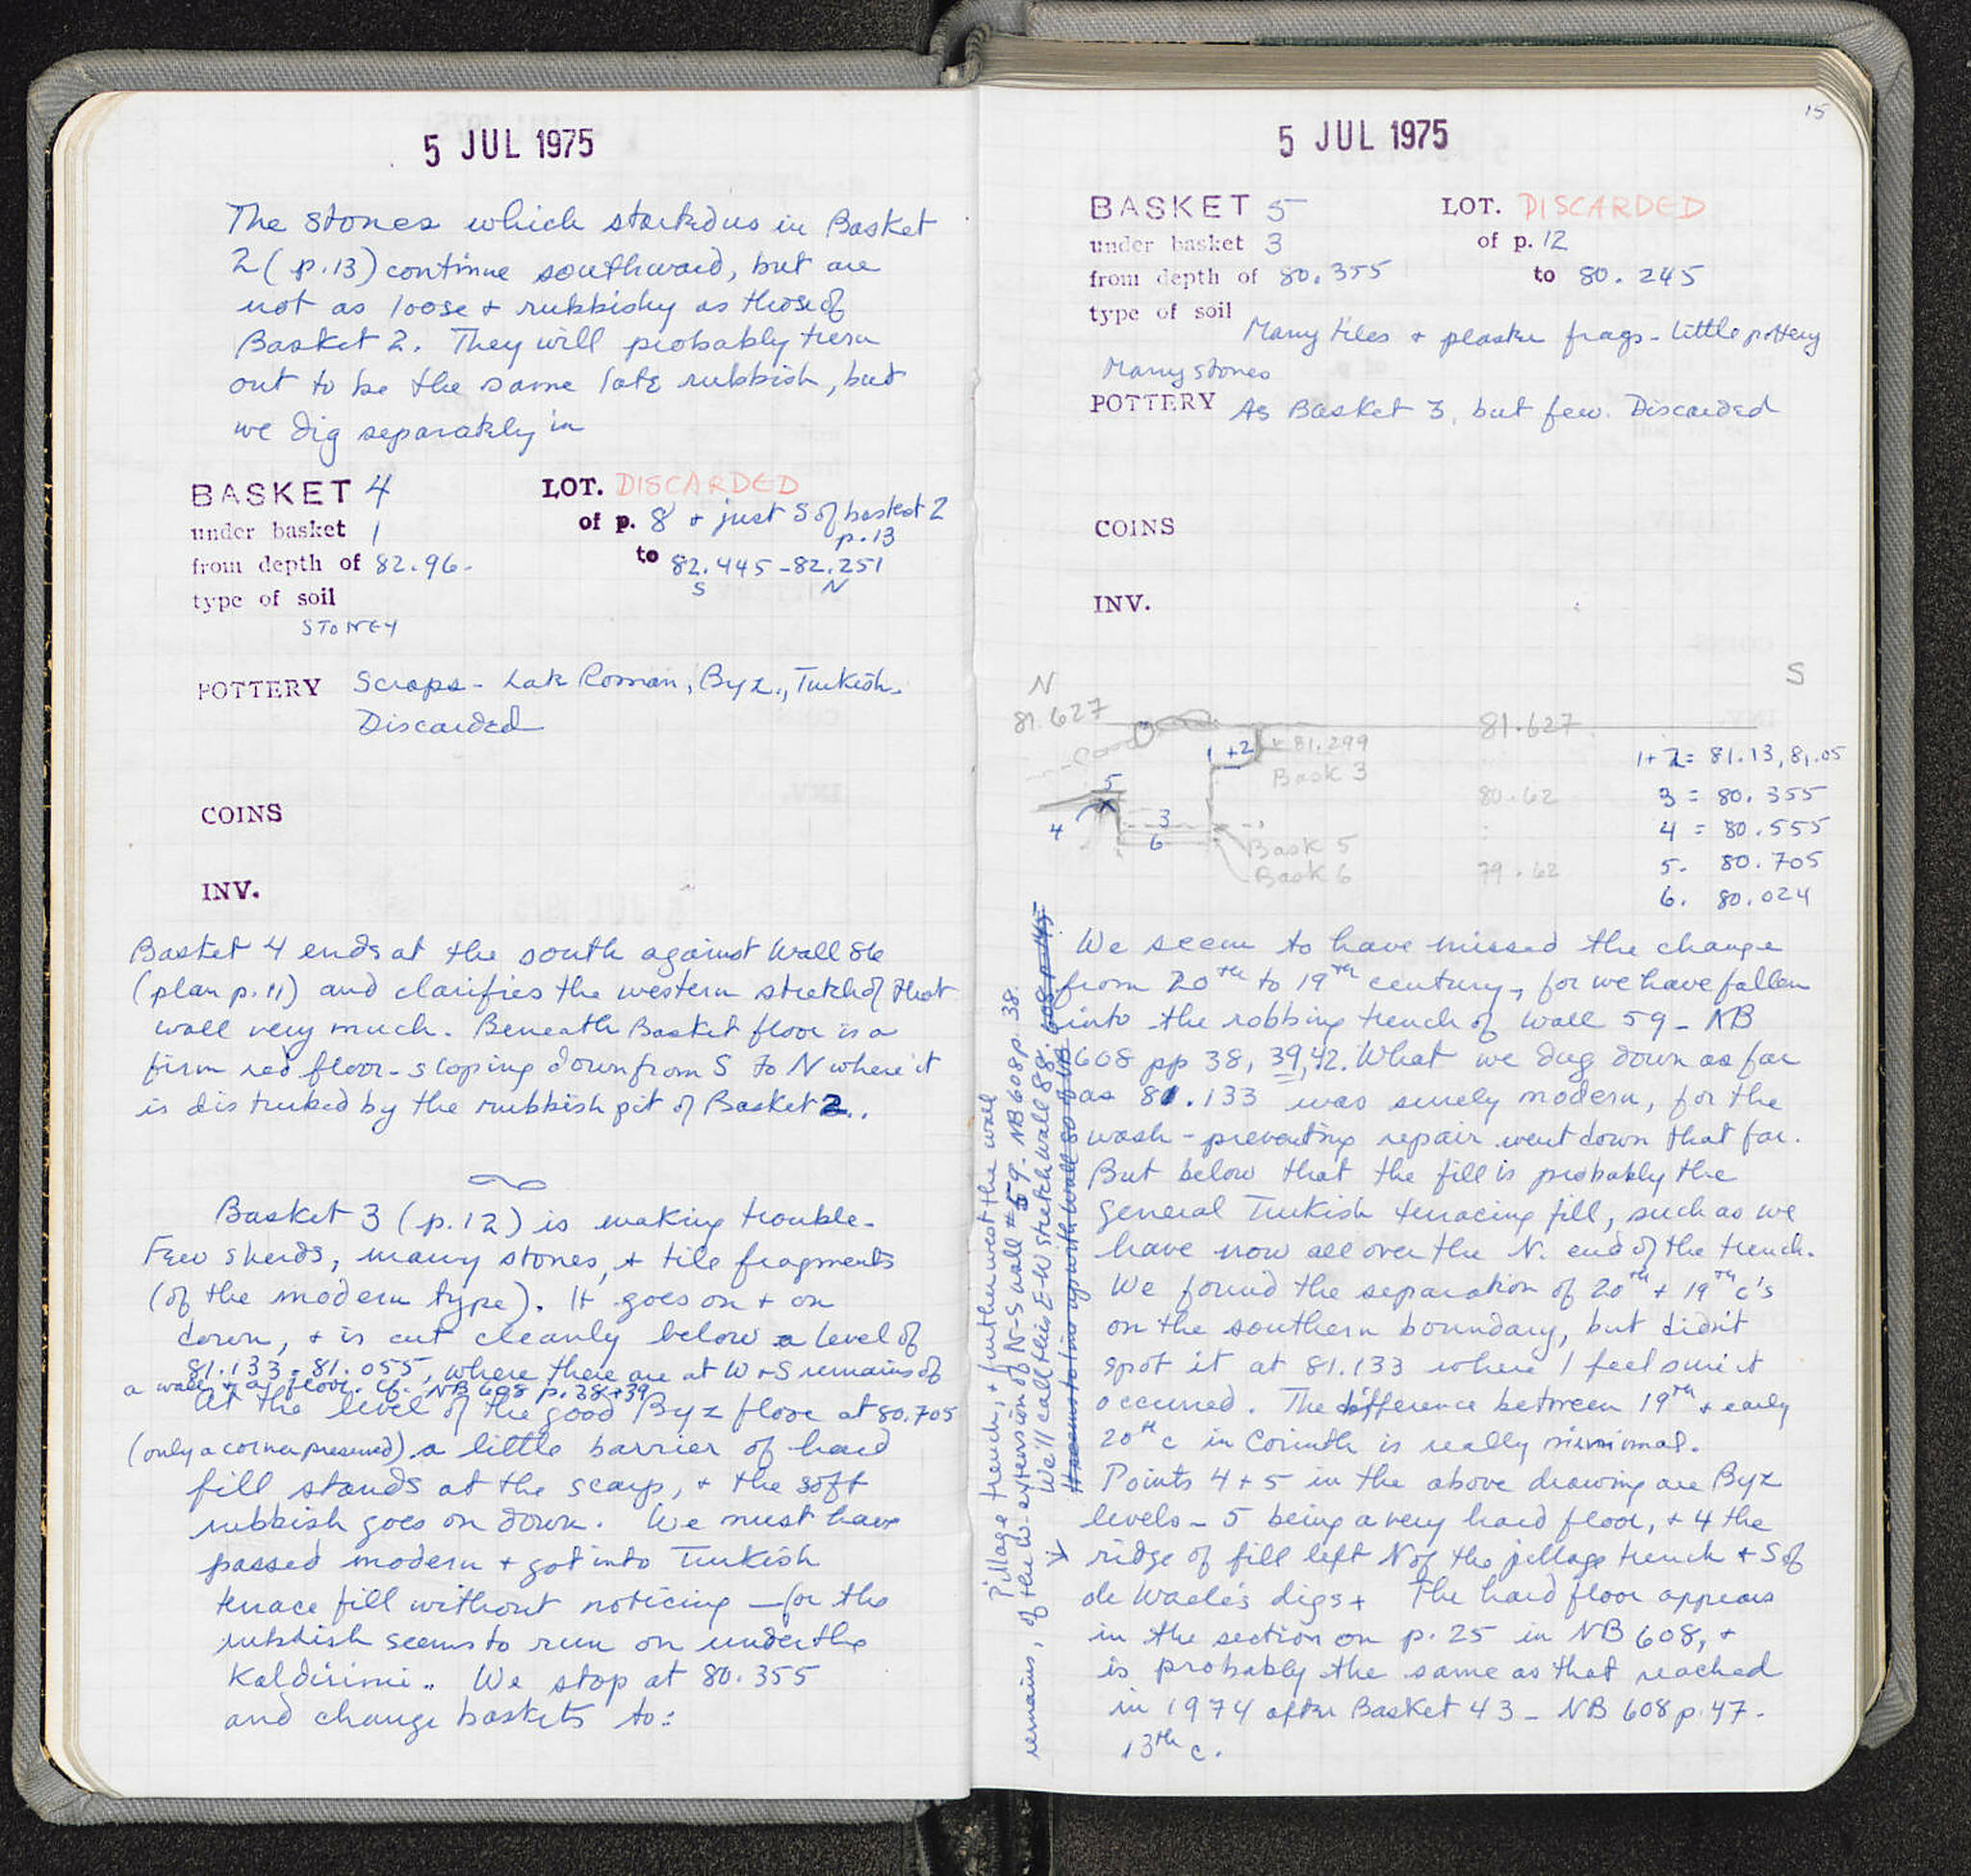 5 JUL 1975
The stones which started us in Basket
2 (p.13) continue southward, but are
not as loose + rubbishy as those of
Basket 2. They will probably turn
out to be the same late rubbish, but
we dig separately in
BASKET 4 LOT. DISCARDED
under basket 1 of p. 8 + just S of basket 2
p.13
from depth of 82.96. to 82.445 - 82.251
S N
type of soil
STONEY
POTTERY Scraps - Late Roman, Byz., Turkish.
Discarded
COINS
INV.
Basket 4 ends at the south against Wall 86
(plan p.11) and clarifies the western stretch of that
wall very much. Beneath Basket floor is a
firm red floor - sloping down from S to N where it
is disturbed by the rubbish pit of Basket 2..
Basket 3 (p.12) is making trouble.
Few sherds, many stones, + tile fragments
(of the modern type). It goes on + on
down, + is cut cleanly below a level of
81.133 - 81.055, where there are at W + S remains of
a wall + a floor. cf. NB 608 p. 38+39
At the level of the good Byz floor at 80.705
(only a corner preserved) a little barrier of hard
fill stands at the scarp, + the soft
rubbish goes on down. We must have
passed modern + got into Turkish
terrace fill without noticing — for the
rubbish seems to run on under the
Kaldirimi.. We stop at 80.355
and change baskets to:
15
5 JUL 1975
BASKET 5 LOT. DISCARDED
under basket 3 of p. 12
from depth of 80.355 to 80.245
type of soil Many tiles + plaster frags - little pottery
Many stones
POTTERY As Basket 3, but few. Discarded
COINS
INV.
N S
81.627 81.627
1+2 81.299 1+2= 81.13, 81.05
Bask 3
5 80.62 3 = 80.355
4 3 4 = 80.555
6 Bask 5 5. 80.705
Bask 6 79.62
6. 80.024
We seem to have missed the change
from 20th to 19th century, for we have fallen
into the robbing trench of Wall 59 - NB
608 pp 38, 39, 42. What we dug down as far
as 81.133 was surely modern, for the
wash-preventing repair went down that far.
But below that the fill is probably the
general Turkish terracing fill, such as we
have now all over the N. end of the trench.
We found the separation of 20th + 19th c's
on the southern boundary, but didn't
spot it at 81.133 where I feel sure it
occurred. The difference between 19th + early
20th c in Corinth is really minimal.
Points 4 + 5 in the above drawing are Byz
levels - 5 being a very hard floor, + 4 the
ridge of fill left N of the pillage trench + S of
de Waele's digs + The hard floor appears
in the section on p. 25 in NB 608, +
is probably the same as that reached
in 1974 after Basket 43 - NB 608 p. 47.
13th c.
Pillage trench, + further west the wall
remains, of the W. extension of N-S wall # 59. NB 608 p. 38.
We'll call this E-W stretch wall 88.
It seems to line up with Wall 80 of NB 608 p 145